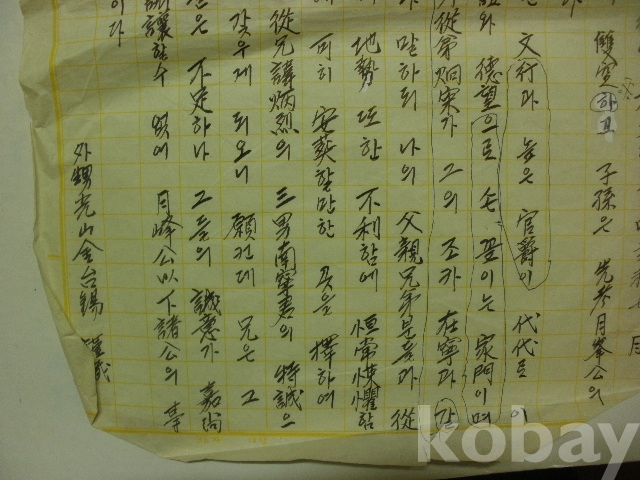 雙窆하고 子孫은 先考月峯公의
文行과 높은 官爵이 代代로 이
德望으로 손꼽이는 家門이며
從弟炯宋가 그의 조카 在寧과 같
말하되 나의 父親兄弟분들과 從
地勢 또한 不利함에 恒常悚懼함
何히 安葬할만한 곳을 擇하여
從兄諱炳烈의 三男南寧君의 特誠으
갖우게 되오니 願컨데 兄은 그
은 不足하나 그들의 誠意가 嘉尙
讓할수 없어 月峰公以下諸公의 事
이다
外甥光山金台錫 謹識
kobay